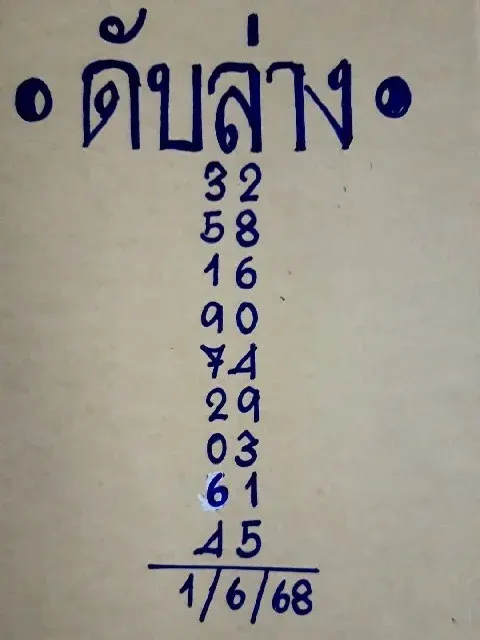 • ดับล่าง •
32
58
16
90
74
29
03
61
45
1/6/68